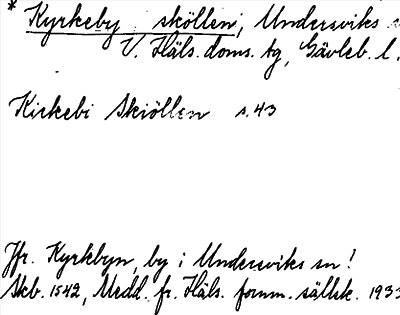 * Kyrkeby sköllen, Undersviks s
V. Häls. doms. tg, Gävleb. l.
Kirkebi Skiöllen s. 43
Jfr. Kyrkbyn, by i Undersviks sn!
Skb. 1542, Medd. fr. Häls. fornm. sällsk. 1933